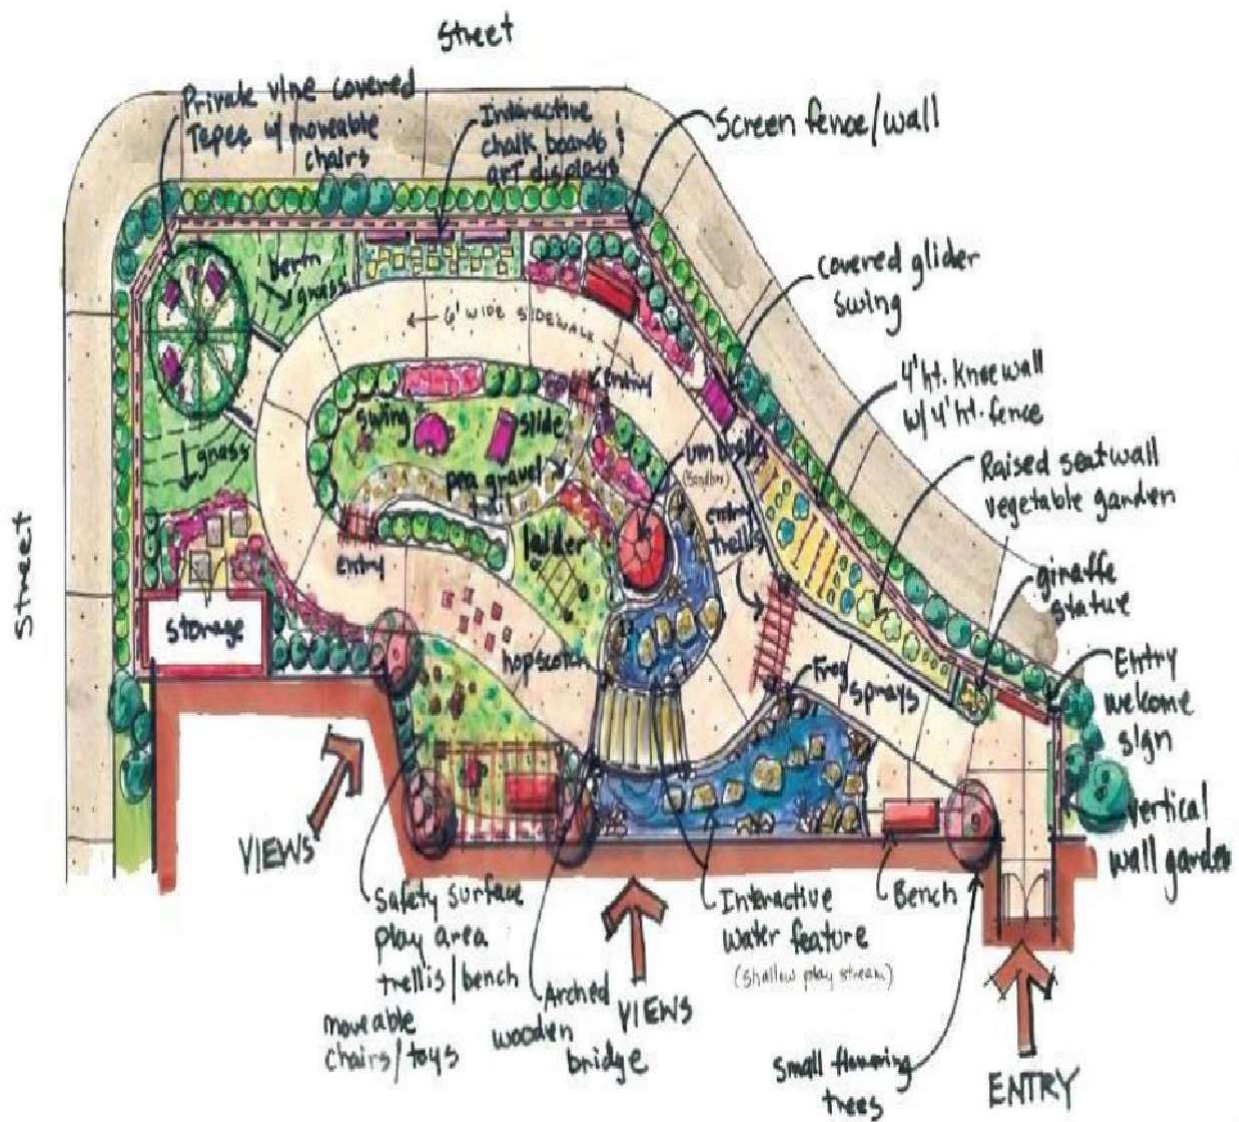 Street
Private vine covered
Tepee w/ moveable
chairs
Interactive
chalk boards &
art displays
Screen fence/wall
covered glider
swing
4' ht. knee wall
w/ 4' ht. fence
Raised seatwall
vegetable garden
giraffe
statue
Entry
welcome
sign
vertical
wall garden
berm
grass
6' WIDE SIDEWALK
entry
swing
slide
umbrella
(sandbox)
pea gravel
trail
grass
entry
trellis
ladder
entry
Street
storage
hopscotch
Frog
sprays
VIEWS
Safety surface
play area
trellis/bench
moveable
chairs/toys
Arched
wooden
bridge
VIEWS
Interactive
water feature
(shallow play stream)
Bench
small flowering
trees
ENTRY